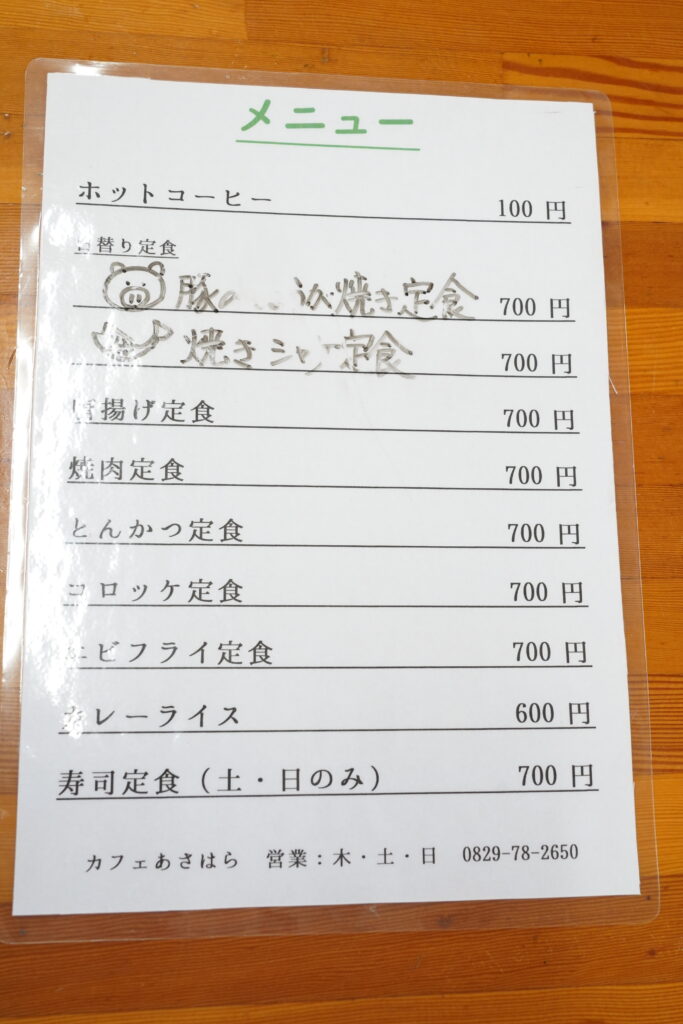 メニュー
ホットコーヒー 100 円
日替り定食
豚 焼き定食 700 円
焼きシャケ定食 700 円
唐揚げ定食 700 円
焼肉定食 700 円
とんかつ定食 700 円
コロッケ定食 700 円
エビフライ定食 700 円
カレーライス 600 円
寿司定食（土・日のみ） 700 円
カフェあさはら 営業：木・土・日 0829-78-2650